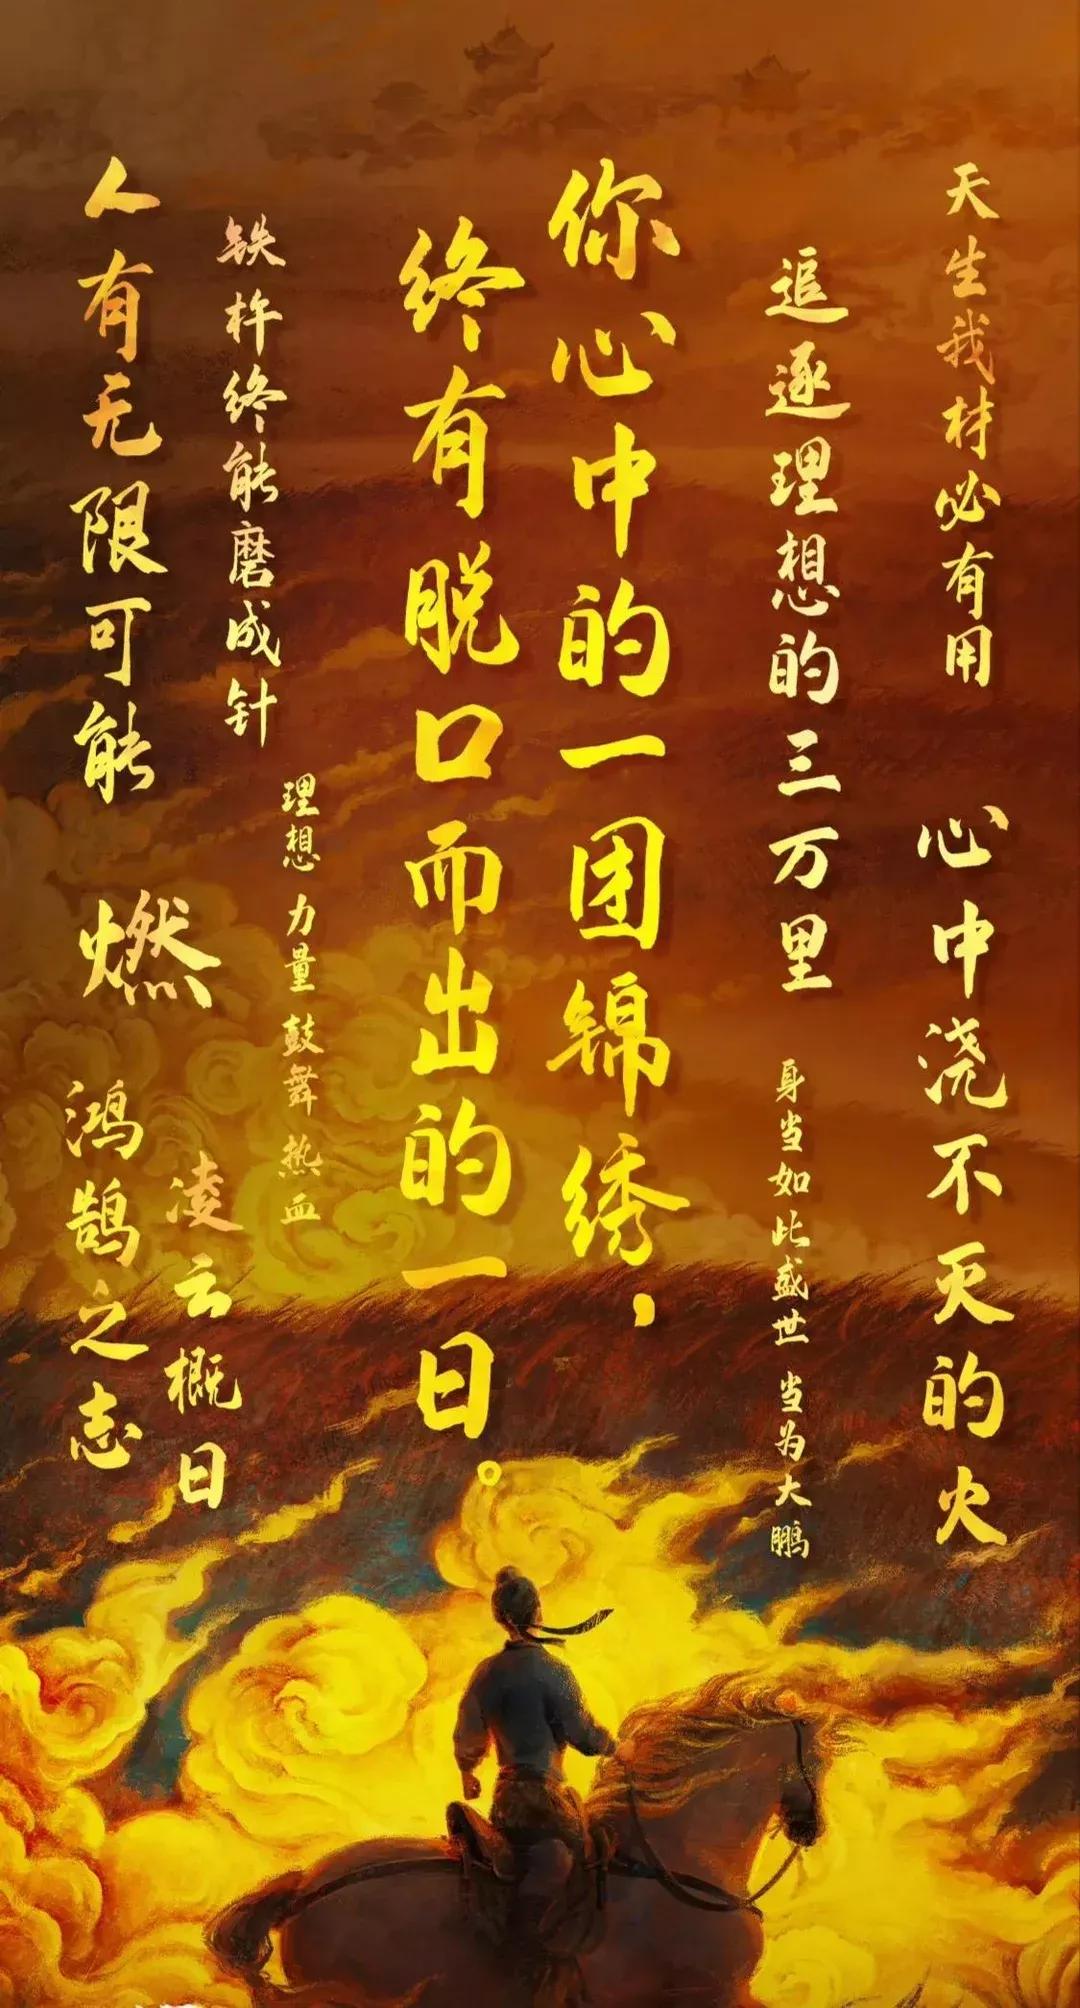 天生我材必有用
心中浇不灭的火
追逐理想的三万里
身当如此盛世 当为大鹏
你心中的一团锦绣，
终有脱口而出的一日。
理想 力量 鼓舞 热血
铁杵终能磨成针
凌云概日
人有无限可能
燃
鸿鹄之志